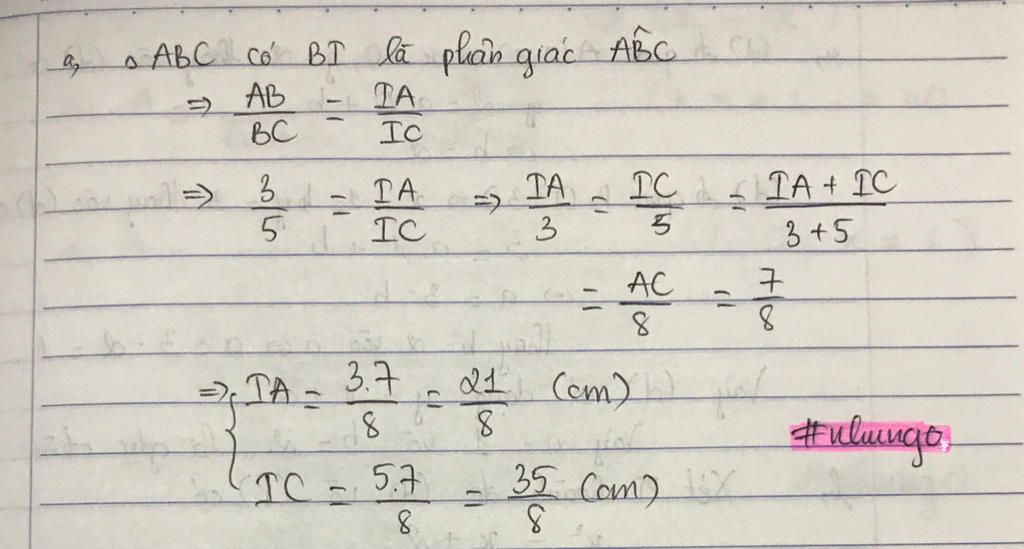 a, △ABC có BI là phân giác AB̂C
⇒ AB/BC = IA/IC
⇒ 3/5 = IA/IC ⇒ IA/3 = IC/5 = (IA + IC)/(3+5)
= AC/8 = 7/8
⇒ { IA = 3.7/8 = 21/8 (cm)
IC = 5.7/8 = 35/8 (cm)